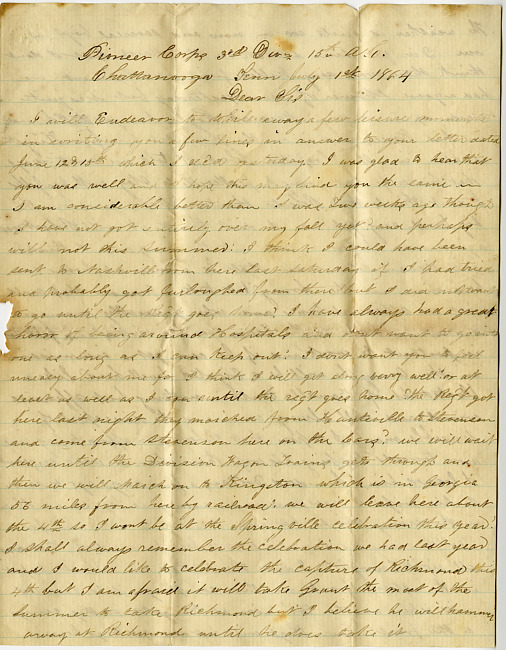 Pioneer Corps 3rd Div 15th A.C.
Chattanooga Tenn July 1st 1864
Dear Sis
I will Endeavor to while away a few leisure moments
in writing you a few lines in answer to your letter dated
June 12 & 15th which I rec'd yesterday I was glad to hear that
you was well and I hope this may find you the same
I am considerable better than I was two weeks ago though
I have not got entirely over my fall yet and perhaps
will not this summer. I think I could have been
sent to Nashville from here last Saturday if I had tried
and probably got furloughed from there but I did not want
to go until the Regt goes home. I have always had a great
horror of being around Hospitals and dont want to go into
one as long as I can keep out. I dont want you to feel
uneasy about me for I think I will get along very well or at
least as well as I can until the regt goes home The Regt got
here last night they marched from Huntsville to Stevenson
and come from Stevenson here on the Cars. we will wait
here until the Division Wagon Trains gets through and
then we will march on to Kingston which is in Georgia
56 miles from here by railroad. we will leave here about
the 4th so I wont be at the Springville celebration this year.
I shall always remember the celebration we had last year
and I would like to celebrate the capture of Richmond this
4th but I am afraid it will take Grant the most of the
summer to take Richmond but I believe he will hammer
away at Richmond until he does take it